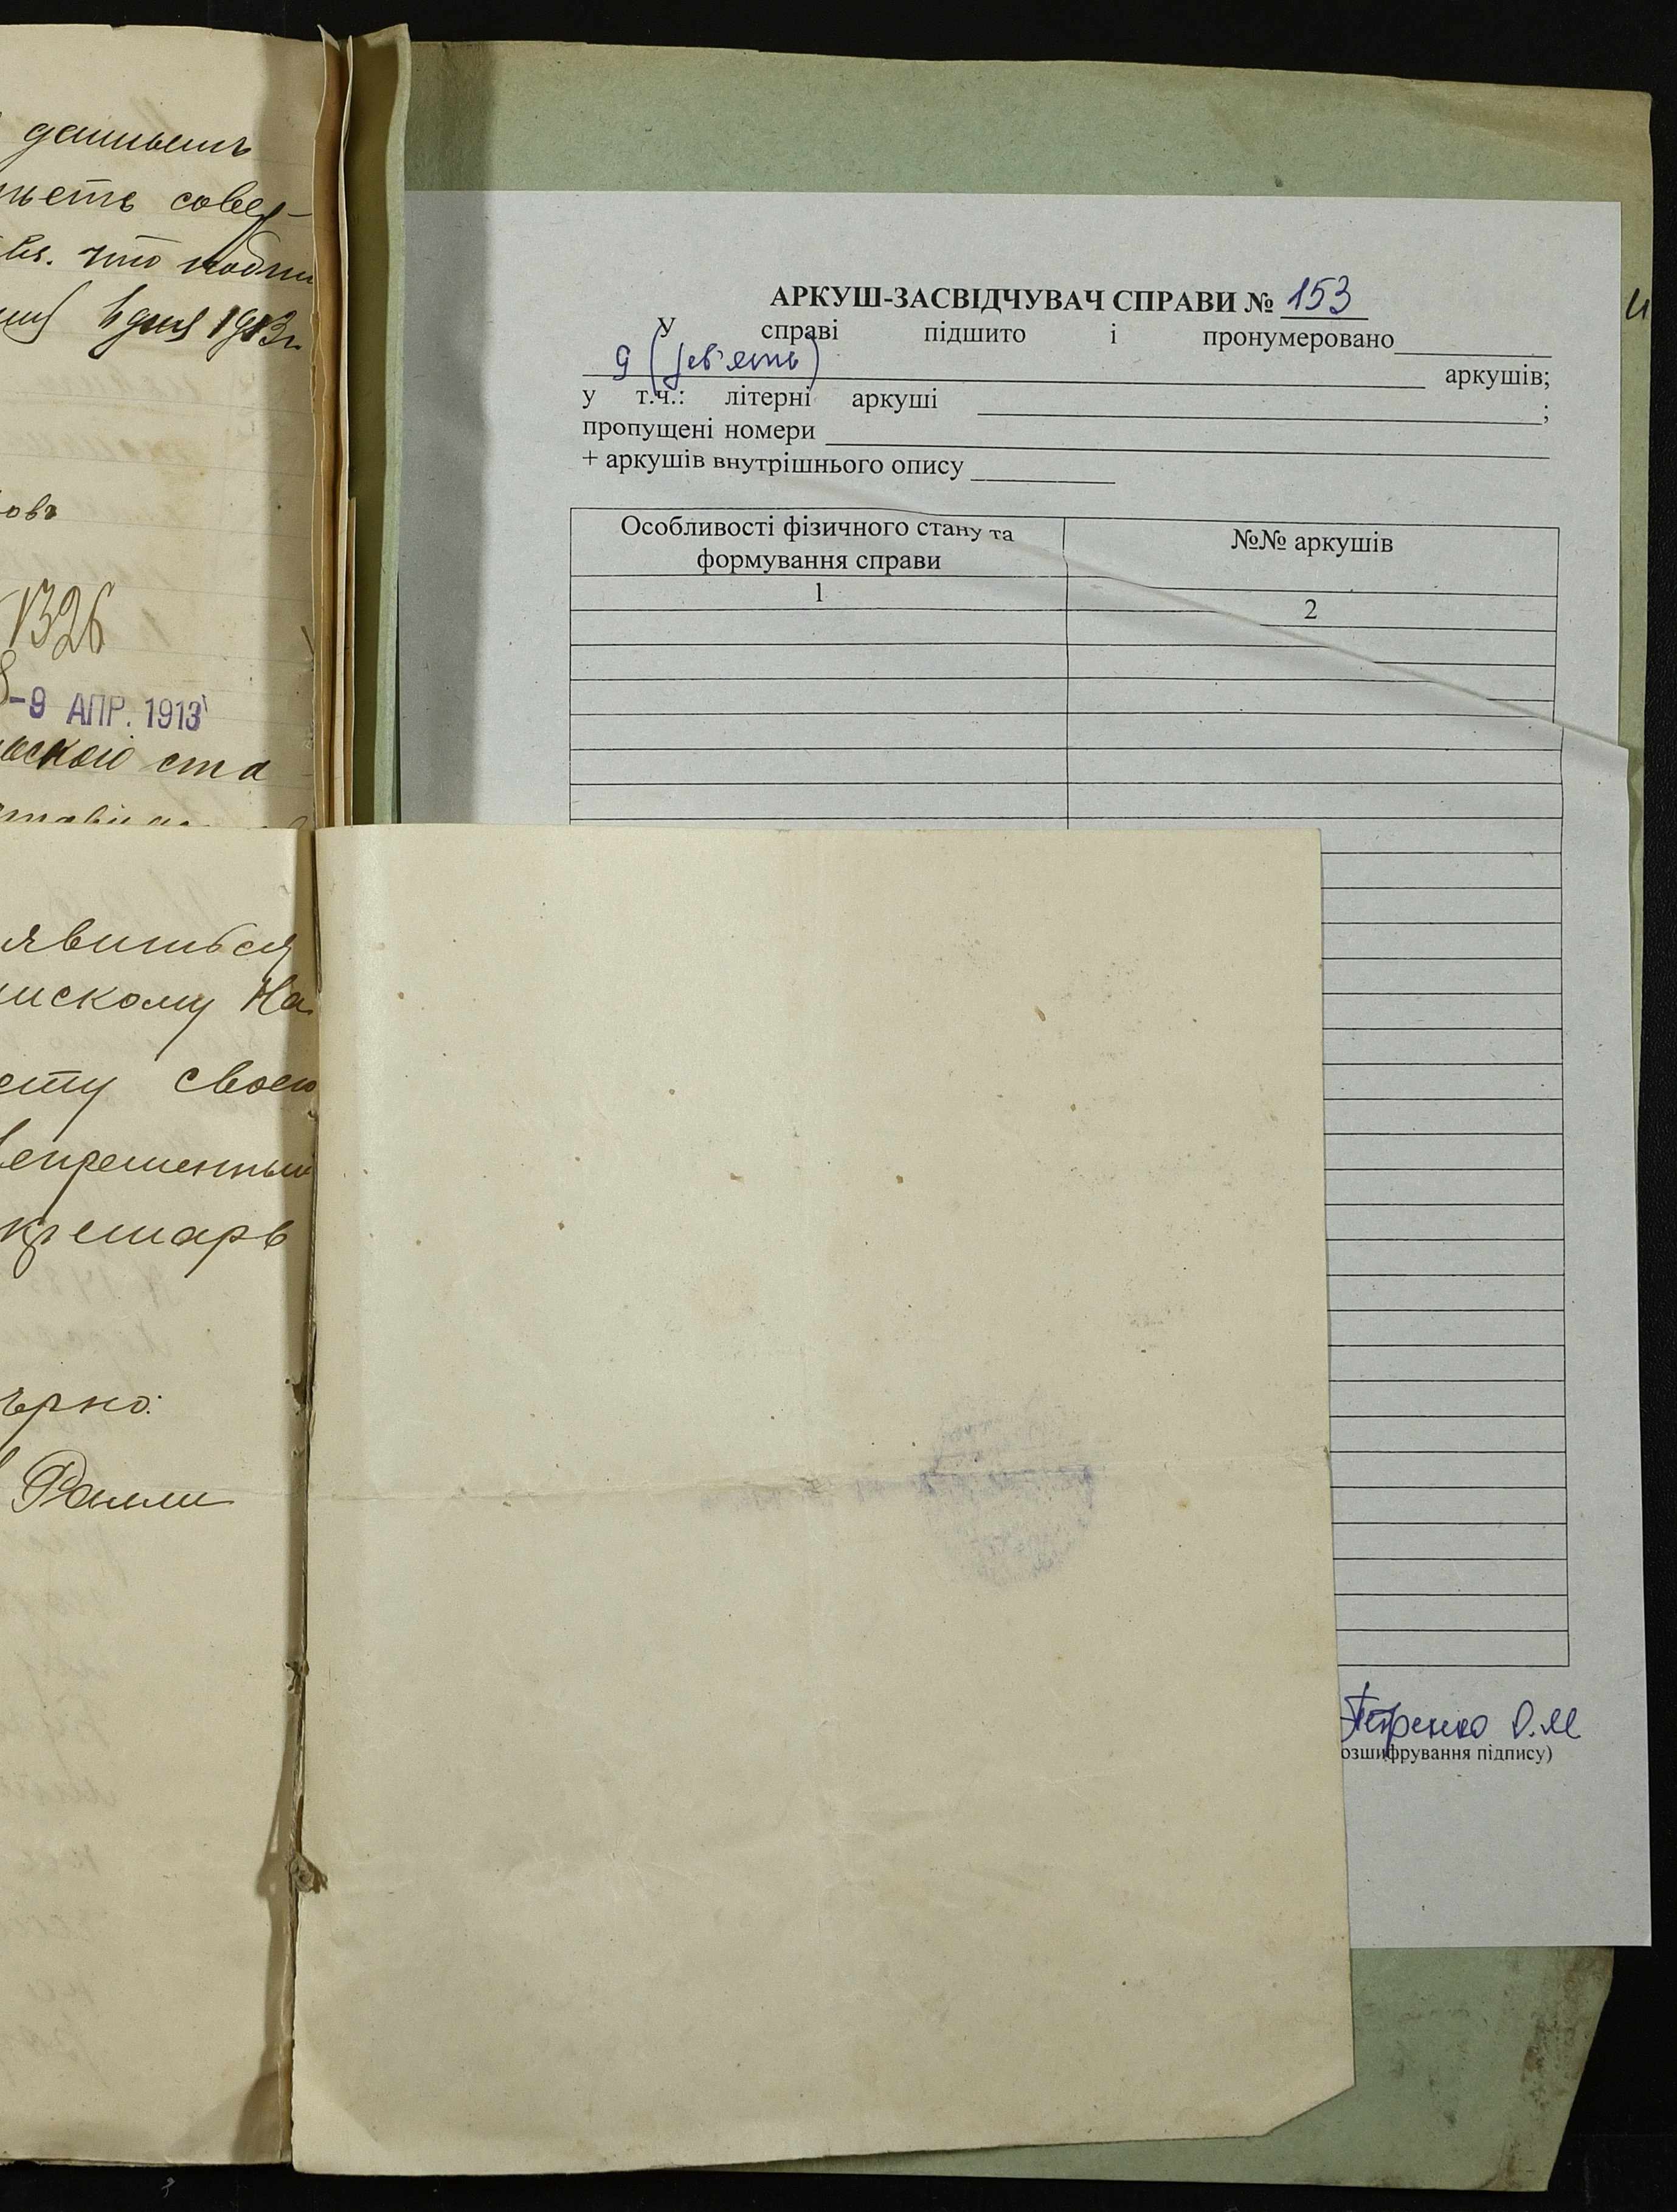 даннымъ
совер-
что
дня 1913г.
овъ
1326
-9 АПР. 1913
ста
явиться
нскому На
сту свое
епременный
кретарь
ѣрно:
Ралли
АРКУШ-ЗАСВІДЧУВАЧ СПРАВИ № 153
У справі підшито і пронумеровано
9 (дев'ять) аркушів;
у т.ч.: літерні аркуші ;
пропущені номери
+ аркушів внутрішнього опису
Особливості фізичного стану та
формування справи
№№ аркушів
1
2
Петренко О.М
озшифрування підпису)